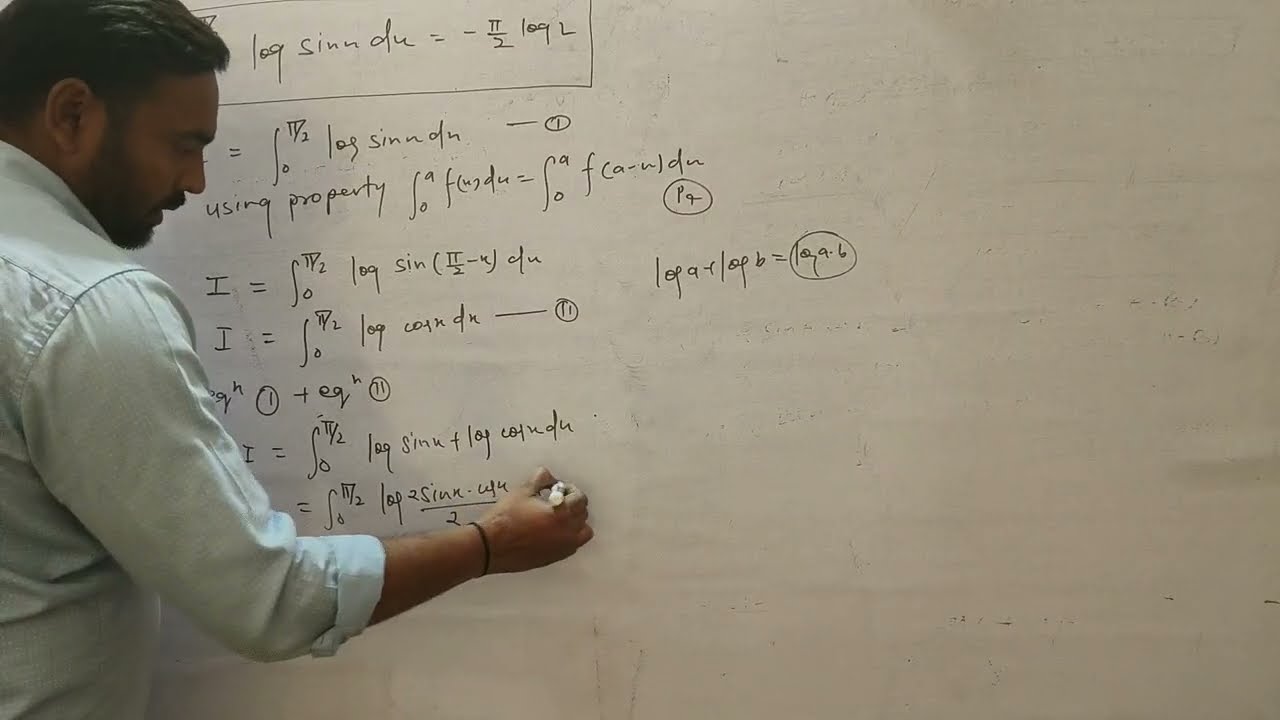 log sinx dx = -π/2 log 2
= ∫₀^π/2 log sinx dx — Ⓘ
using property ∫₀^a f(x)dx = ∫₀^a f(a-x)dx
P₄
I = ∫₀^π/2 log sin(π/2-x) dx
log a + log b = log a·b
I = ∫₀^π/2 log cosx dx — Ⓘⓘ
eqⁿ Ⓘ + eqⁿ Ⓘⓘ
I = ∫₀^π/2 log sinx + log cosx dx
= ∫₀^π/2 log 2sinx·cosx/2